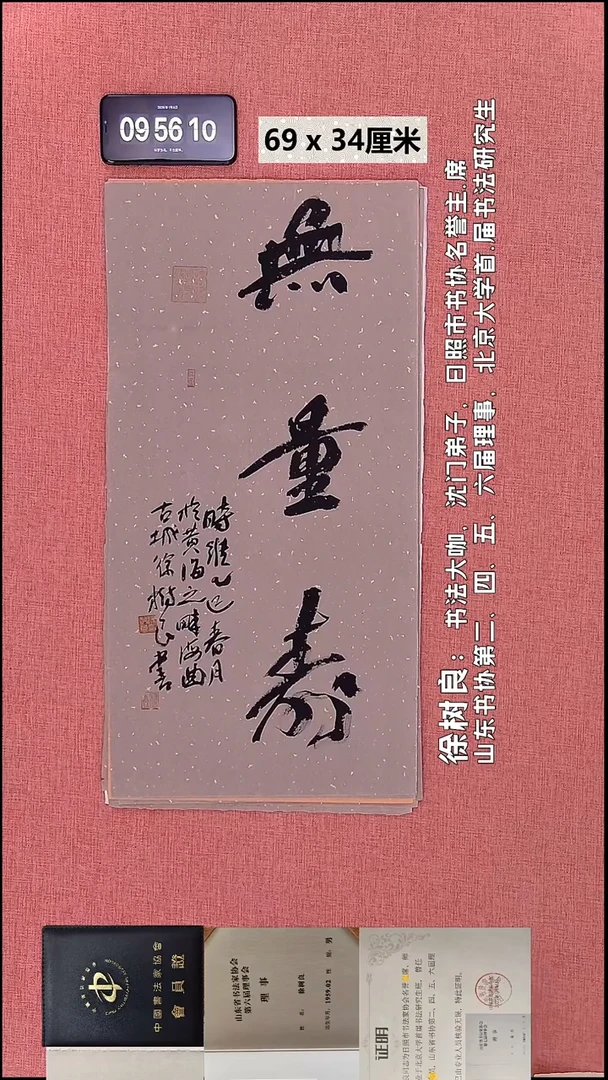 09 56 10
69 x 34厘米
無量壽
時維乙巳春月
於黄海之畔海曲
古城徐樹良書
徐树良：书法大咖，沈门弟子，日照市书协名誉主.席
山东书协第二、四、五、六届理事，北京大学首.届书法研究生
中國書法家協會
會員證
山东省书法家协会
第六届理事会
理事
姓名：徐树良
性别：男
出生年月：1959.02
证明